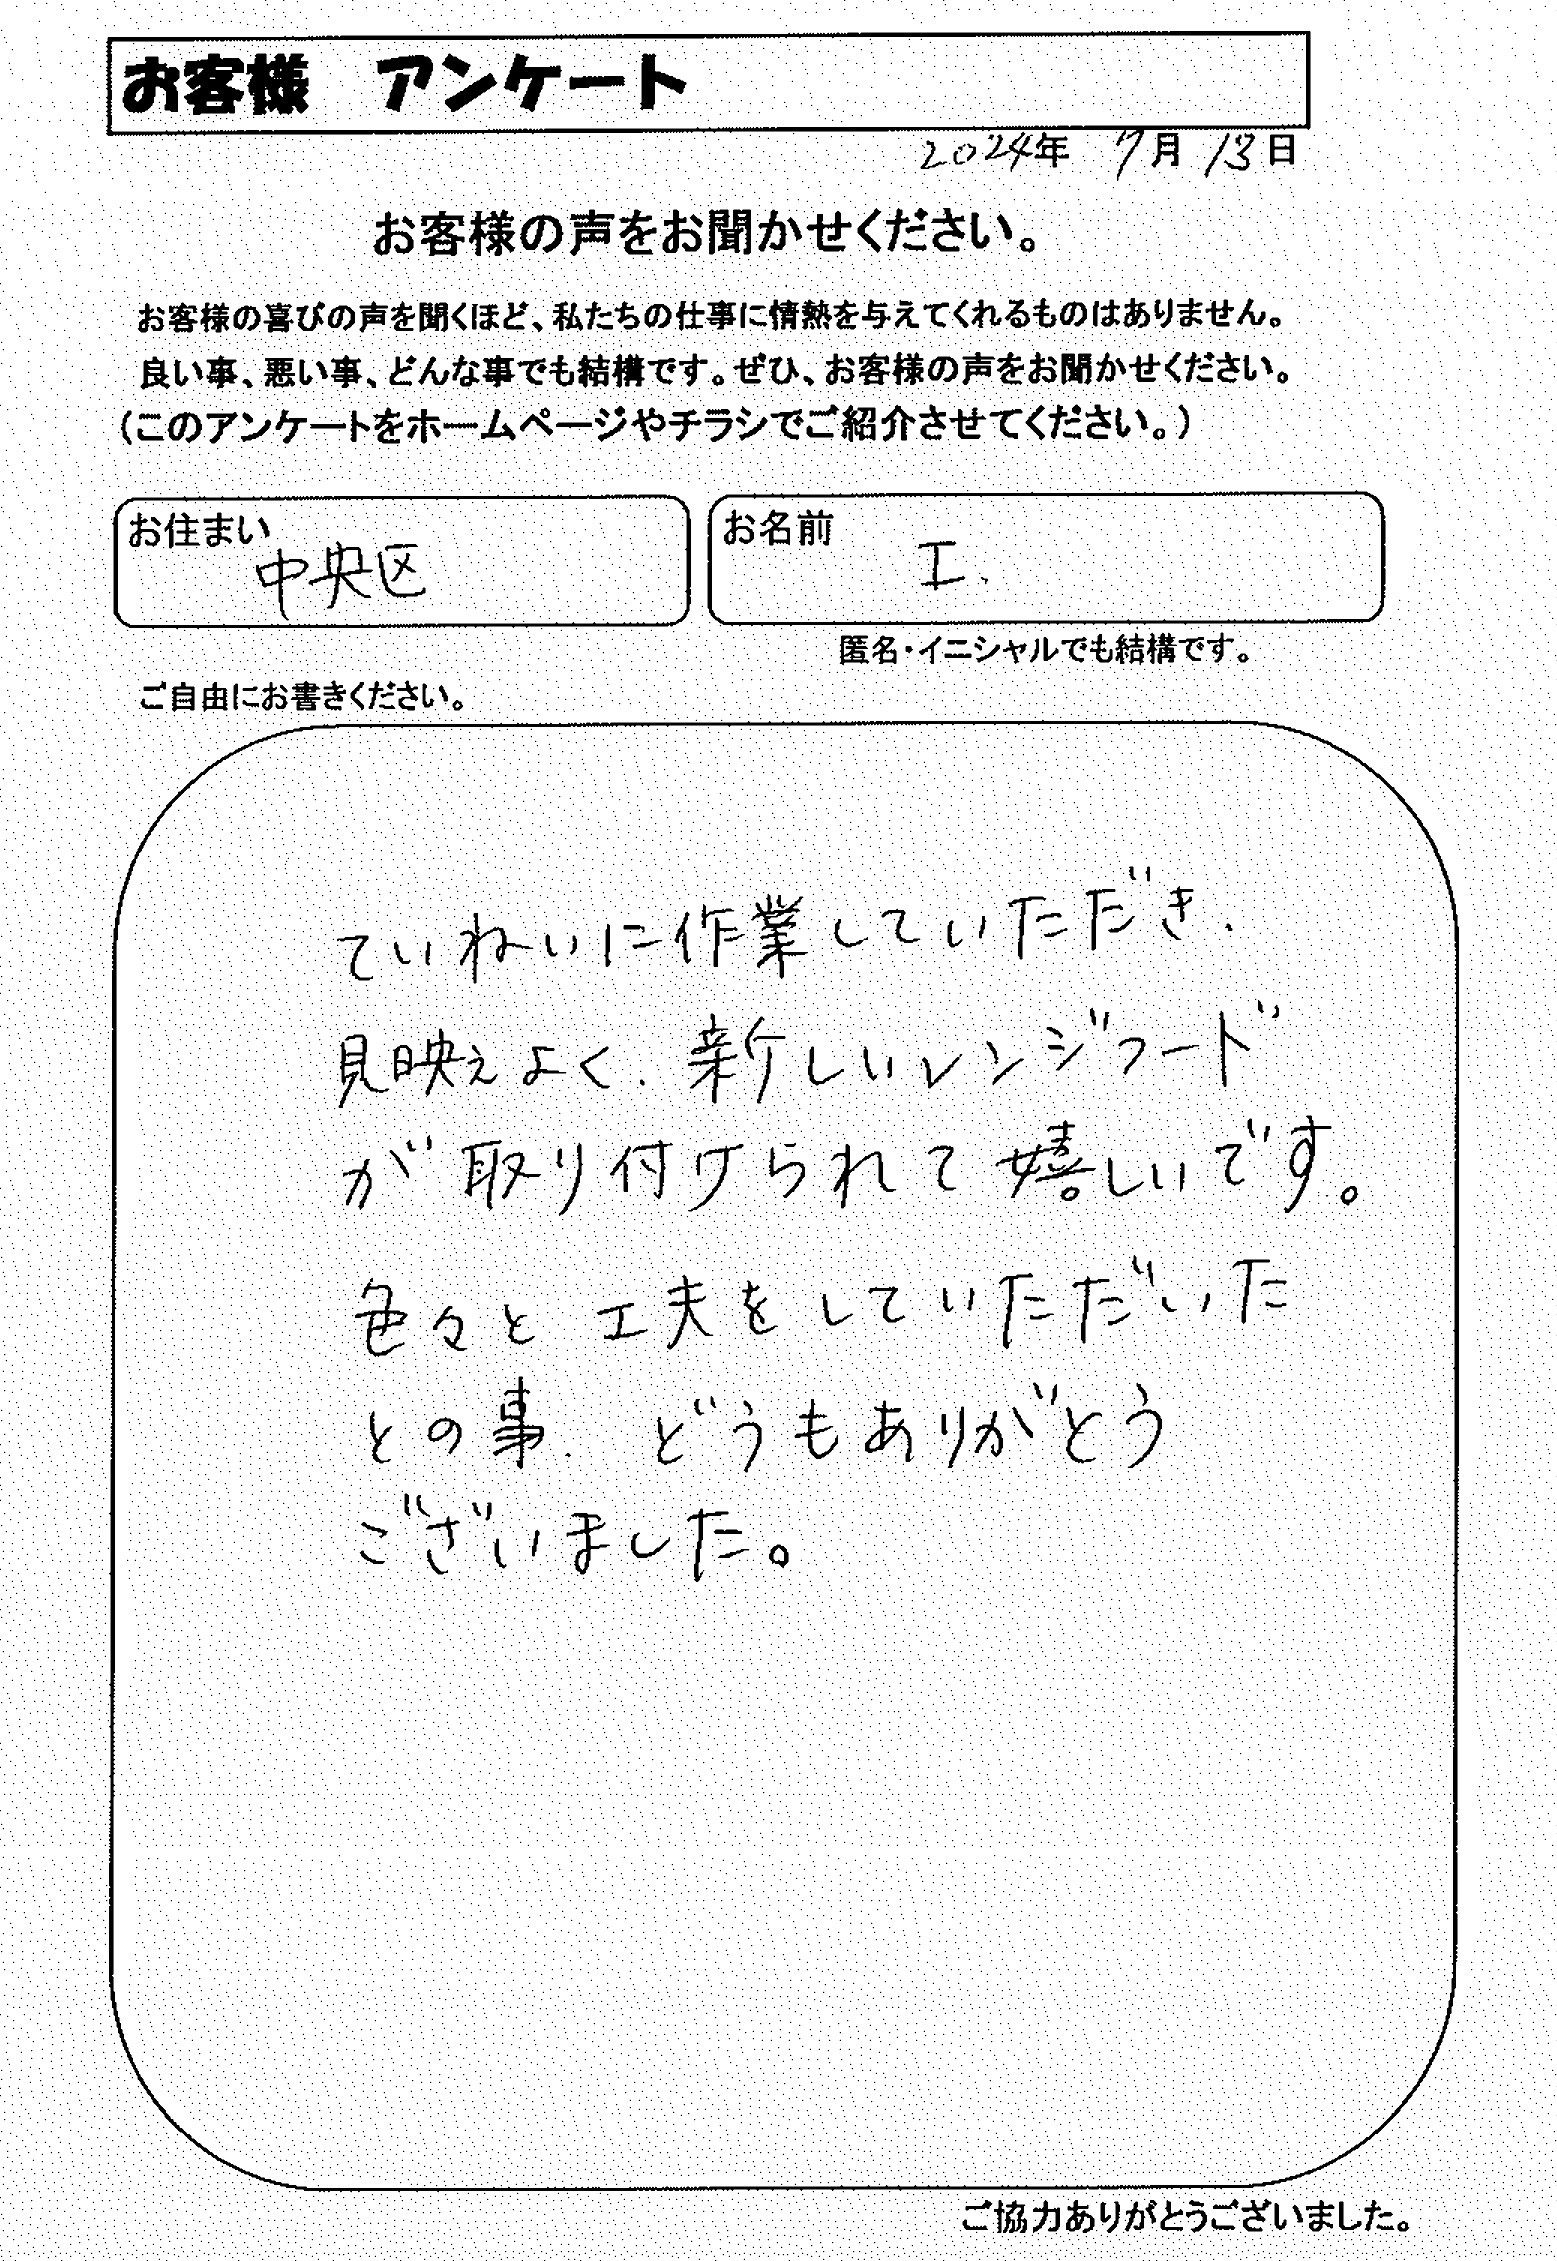 お客様 アンケート
2024年 7月 13日
お客様の声をお聞かせください。
お客様の喜びの声を聞くほど、私たちの仕事に情熱を与えてくれるものはありません。
良い事、悪い事、どんな事でも結構です。ぜひ、お客様の声をお聞かせください。
(このアンケートをホームページやチラシでご紹介させてください。)
お住まい 中央区
お名前 I.
匿名・イニシャルでも結構です。
ご自由にお書きください。
ていねいに作業していただき、
見映えよく、新しいレンジフード
が取り付けられて嬉しいです。
色々と工夫をしていただいた
との事、どうもありがとう
ございました。
ご協力ありがとうございました。